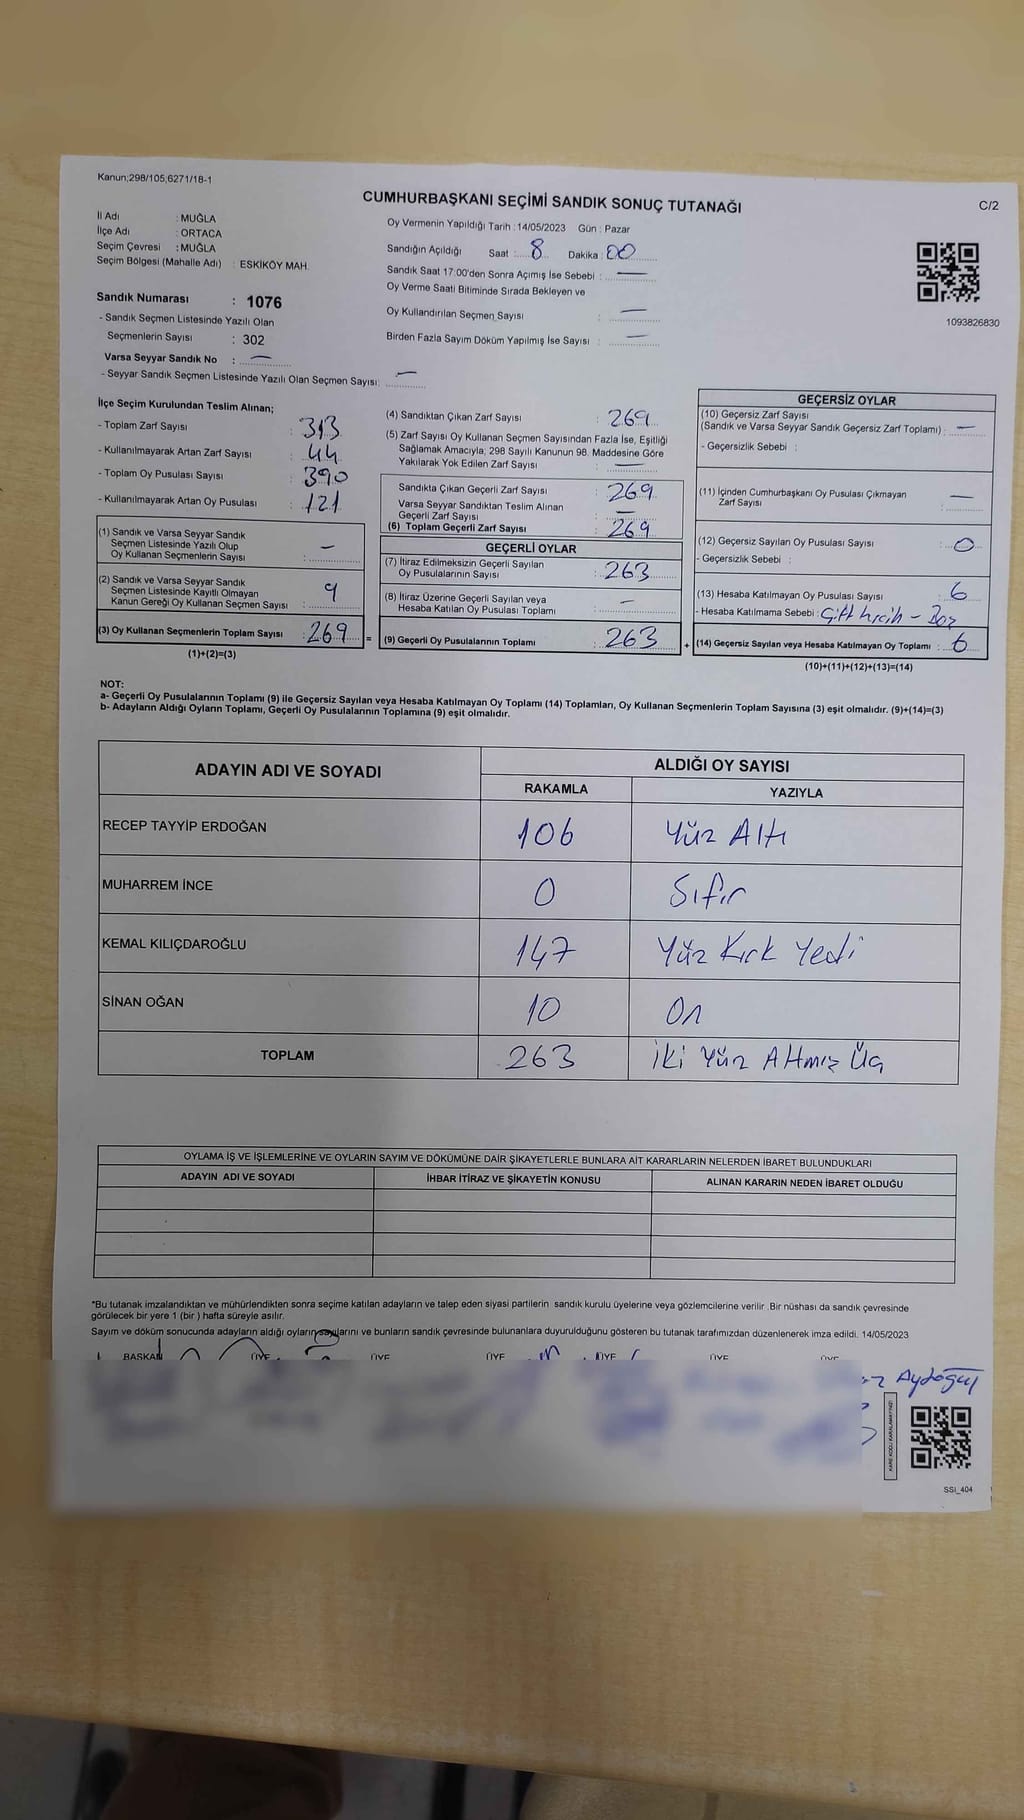 Kanun;298/105,6271/18-1
CUMHURBAŞKANI SEÇİMİ SANDIK SONUÇ TUTANAĞI
C/2
İl Adı : MUĞLA
İlçe Adı : ORTACA
Seçim Çevresi : MUĞLA
Seçim Bölgesi (Mahalle Adı) : ESKİKÖY MAH.
Sandık Numarası : 1076
- Sandık Seçmen Listesinde Yazılı Olan
Seçmenlerin Sayısı : 302
Varsa Seyyar Sandık No : —
- Seyyar Sandık Seçmen Listesinde Yazılı Olan Seçmen Sayısı: —
Oy Vermenin Yapıldığı Tarih : 14/05/2023 Gün : Pazar
Sandığın Açıldığı Saat : 8 Dakika : 00
Sandık Saat 17:00'den Sonra Açımış İse Sebebi : —
Oy Verme Saati Bitiminde Sırada Bekleyen ve
Oy Kullandırılan Seçmen Sayısı : —
Birden Fazla Sayım Döküm Yapılmış İse Sayısı : —
1093826830
İlçe Seçim Kurulundan Teslim Alınan;
- Toplam Zarf Sayısı : 313
- Kullanılmayarak Artan Zarf Sayısı : 44
- Toplam Oy Pusulası Sayısı : 390
- Kullanılmayarak Artan Oy Pusulası : 121
(1) Sandık ve Varsa Seyyar Sandık
Seçmen Listesinde Yazılı Olup
Oy Kullanan Seçmenlerin Sayısı : —
(2) Sandık ve Varsa Seyyar Sandık
Seçmen Listesinde Kayıtlı Olmayan
Kanun Gereği Oy Kullanan Seçmen Sayısı : 9
(3) Oy Kullanan Seçmenlerin Toplam Sayısı : 269 =
(1)+(2)=(3)
(4) Sandıktan Çıkan Zarf Sayısı : 269
(5) Zarf Sayısı Oy Kullanan Seçmen Sayısından Fazla İse, Eşitliği
Sağlamak Amacıyla; 298 Sayılı Kanunun 98. Maddesine Göre
Yakılarak Yok Edilen Zarf Sayısı : —
Sandıkta Çıkan Geçerli Zarf Sayısı : 269
Varsa Seyyar Sandıktan Teslim Alınan
Geçerli Zarf Sayısı : —
(6) Toplam Geçerli Zarf Sayısı : 269
GEÇERLİ OYLAR
(7) İtiraz Edilmeksizin Geçerli Sayılan
Oy Pusulalarının Sayısı : 263
(8) İtiraz Üzerine Geçerli Sayılan veya
Hesaba Katılan Oy Pusulası Toplamı : —
(9) Geçerli Oy Pusulalarının Toplamı : 263 +
GEÇERSİZ OYLAR
(10) Geçersiz Zarf Sayısı
(Sandık ve Varsa Seyyar Sandık Geçersiz Zarf Toplamı) : —
- Geçersizlik Sebebi :
(11) İçinden Cumhurbaşkanı Oy Pusulası Çıkmayan
Zarf Sayısı : —
(12) Geçersiz Sayılan Oy Pusulası Sayısı : 0
- Geçersizlik Sebebi :
(13) Hesaba Katılmayan Oy Pusulası Sayısı : 6
- Hesaba Katılmama Sebebi : Çift tercih - Boş
(14) Geçersiz Sayılan veya Hesaba Katılmayan Oy Toplamı : 6
(10)+(11)+(12)+(13)=(14)
NOT:
a- Geçerli Oy Pusulalarının Toplamı (9) ile Geçersiz Sayılan veya Hesaba Katılmayan Oy Toplamı (14) Toplamları, Oy Kullanan Seçmenlerin Toplam Sayısına (3) eşit olmalıdır. (9)+(14)=(3)
b- Adayların Aldığı Oyların Toplamı, Geçerli Oy Pusulalarının Toplamına (9) eşit olmalıdır.
ADAYIN ADI VE SOYADI ALDIĞI OY SAYISI
RAKAMLA YAZIYLA
RECEP TAYYİP ERDOĞAN 106 Yüz Altı
MUHARREM İNCE 0 Sıfır
KEMAL KILIÇDAROĞLU 147 Yüz Kırk Yedi
SİNAN OĞAN 10 On
TOPLAM 263 İki Yüz Altmış Üç
OYLAMA İŞ VE İŞLEMLERİNE VE OYLARIN SAYIM VE DÖKÜMÜNE DAİR ŞİKAYETLERLE BUNLARA AİT KARARLARIN NELERDEN İBARET BULUNDUKLARI
ADAYIN ADI VE SOYADI İHBAR İTİRAZ VE ŞİKAYETİN KONUSU ALINAN KARARIN NEDEN İBARET OLDUĞU
*Bu tutanak imzalandıktan ve mühürlendikten sonra seçime katılan adayların ve talep eden siyasi partilerin sandık kurulu üyelerine veya gözlemcilerine verilir. Bir nüshası da sandık çevresinde
görülecek bir yere 1 (bir ) hafta süreyle asılır.
Sayım ve döküm sonucunda adayların aldığı oyların sayılarını ve bunların sandık çevresinde bulunanlara duyurulduğunu gösteren bu tutanak tarafımızdan düzenlenerek imza edildi. 14/05/2023
BAŞKAN ÜYE ÜYE ÜYE ÜYE ÜYE ÜYE
Aydoğul
KARE KODU KARALAMAYINIZ!
SSİ_404